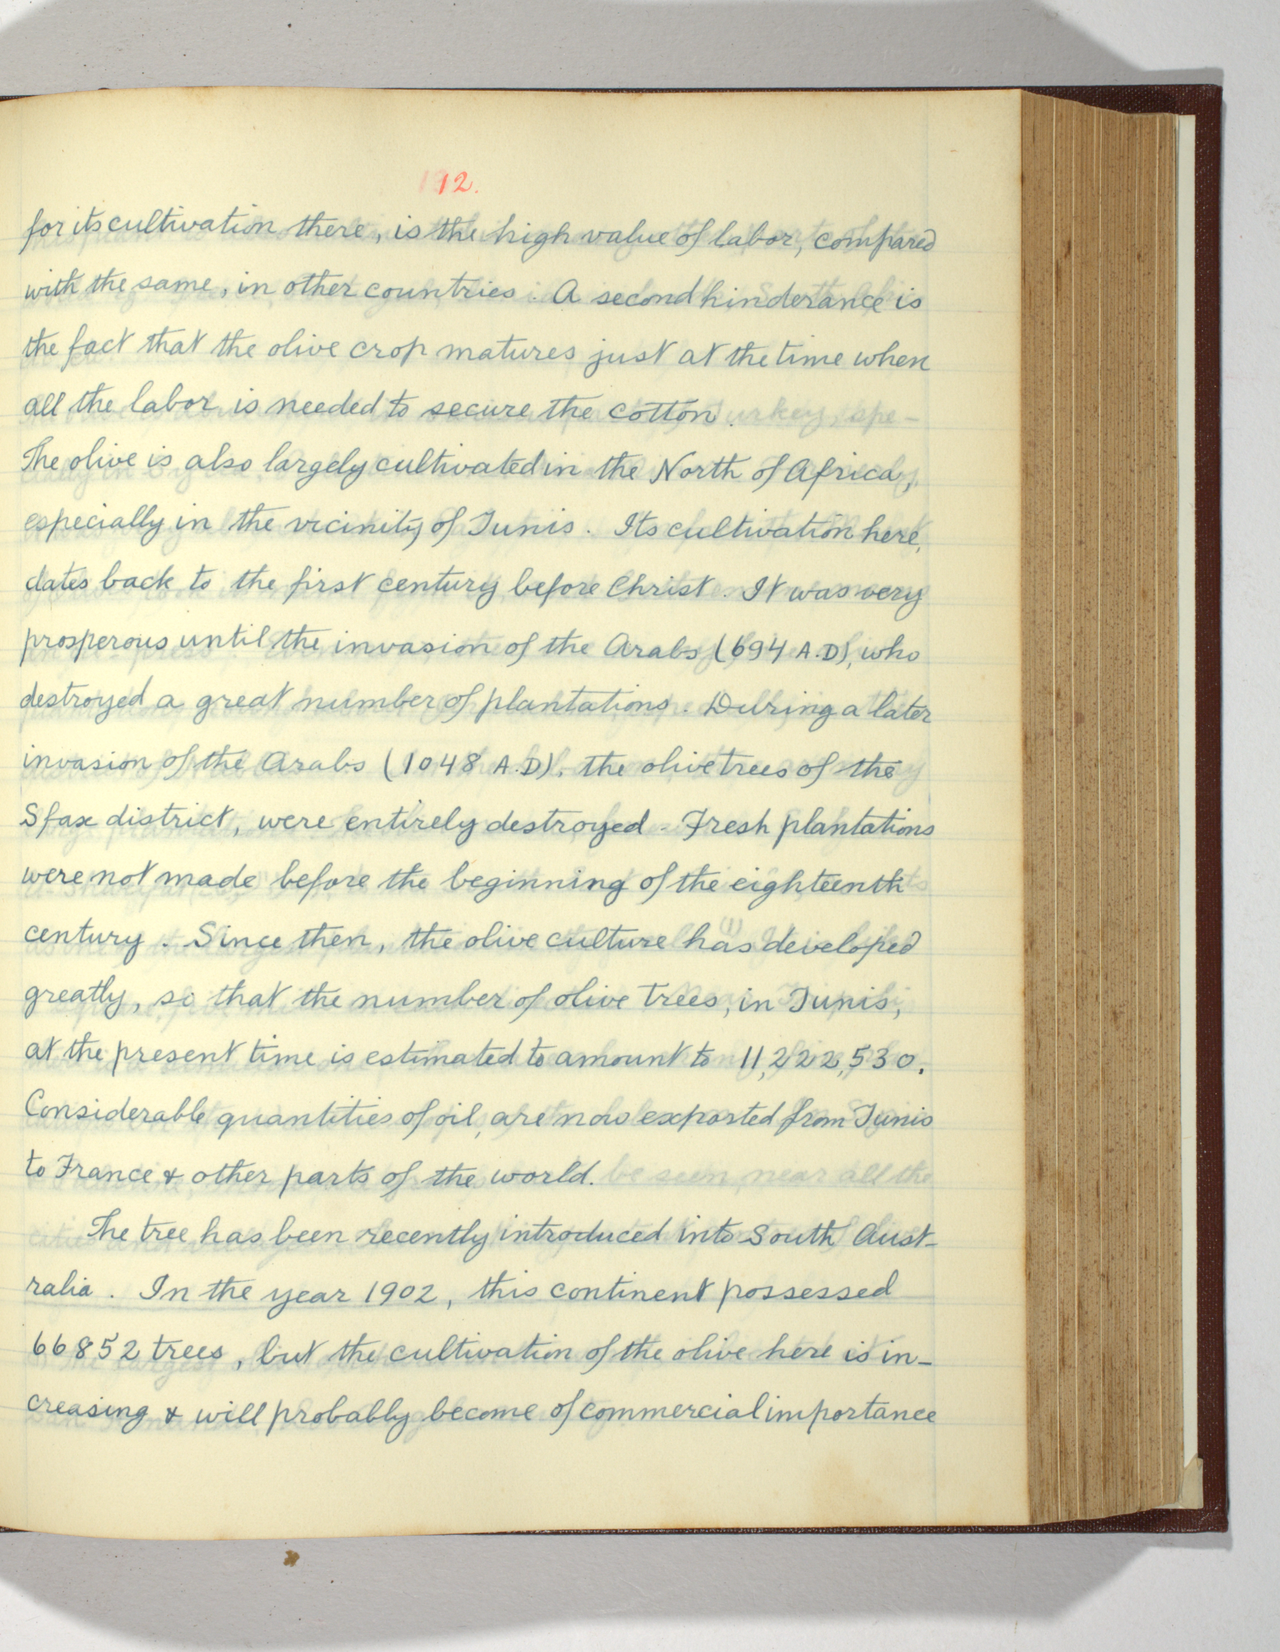 12.
for its cultivation there, is the high value of labor, compared
with the same, in other countries. A second hinderance is
the fact that the olive crop matures just at the time when
all the labor is needed to secure the cotton.
The olive is also largely cultivated in the North of Africa,
especially in the vicinity of Tunis. Its cultivation here,
dates back to the first century before Christ. It was very
prosperous until the invasion of the Arabs (694 A.D), who
destroyed a great number of plantations. During a later
invasion of the Arabs (1048 A.D), the olive trees of the
Sfax district, were entirely destroyed. Fresh plantations
were not made before the beginning of the eighteenth
century. Since then, the olive culture has developed
greatly, so that the number of olive trees, in Tunis,
at the present time is estimated to amount to 11,222,530.
Considerable quantities of oil, are now exported from Tunis
to France & other parts of the world.
The tree has been recently introduced into South Aust-
ralia. In the year 1902, this continent possessed
66852 trees, but the cultivation of the olive here is in-
creasing & will probably become of commercial importance